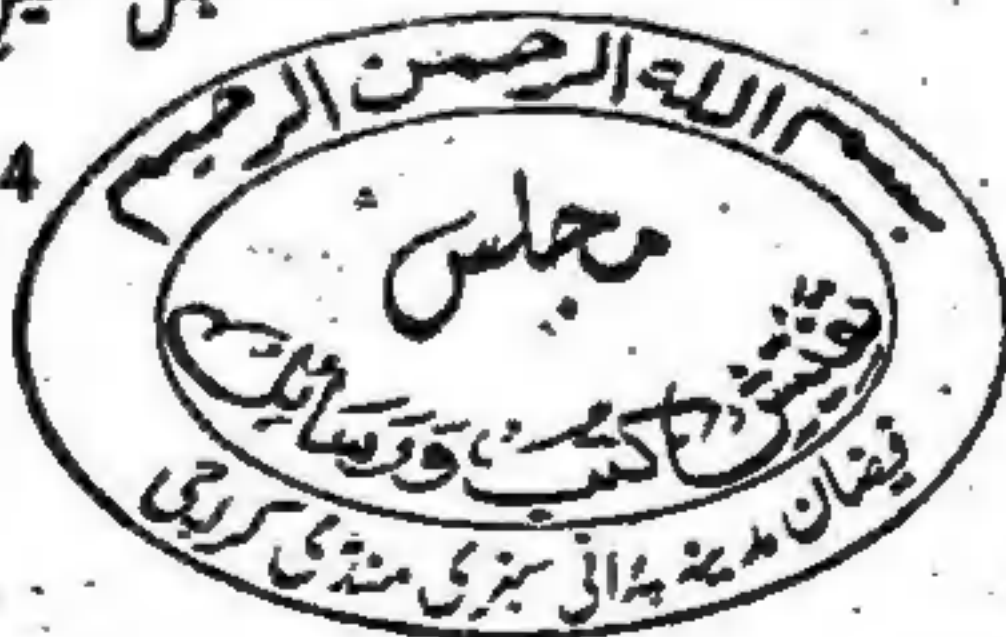 بسم الله الرحمن الرحیم
مجلس
تفتیش کتب ورسائل
فیضان مدینہ پرانی سبزی منڈی کراچی
4